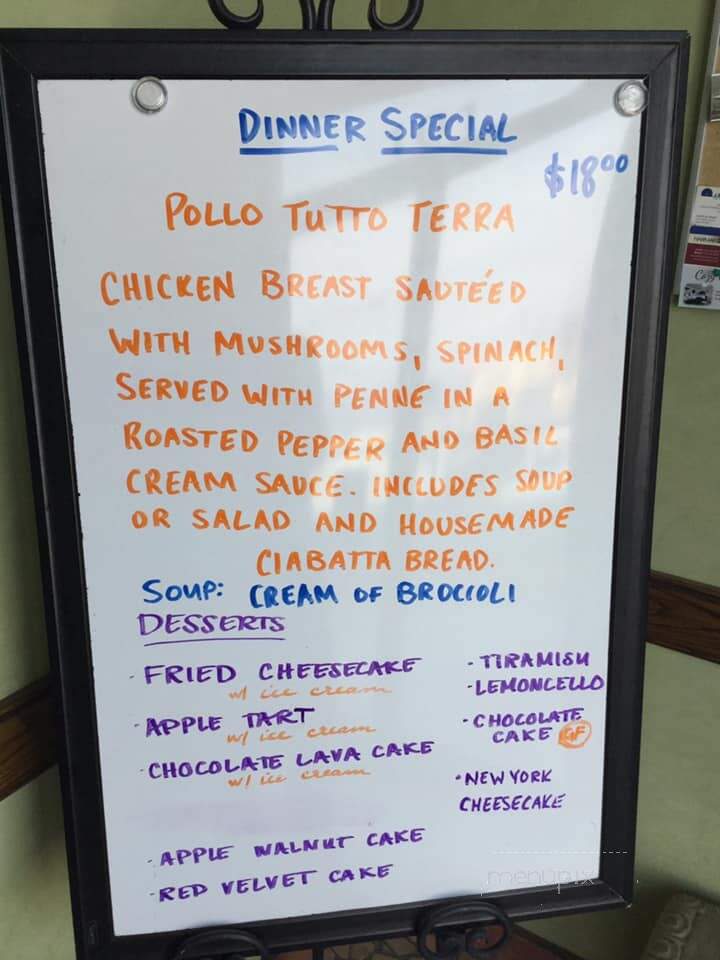 DINNER SPECIAL
$18⁰⁰
POLLO TUTTO TERRA
CHICKEN BREAST SAUTÉ'ED
WITH MUSHROOMS, SPINACH,
SERVED WITH PENNE IN A
ROASTED PEPPER AND BASIL
CREAM SAUCE. INCLUDES SOUP
OR SALAD AND HOUSEMADE
CIABATTA BREAD.
SOUP: CREAM OF BROCCOLI
DESSERTS
· FRIED CHEESECAKE
w/ ice cream
· APPLE TART
w/ ice cream
· CHOCOLATE LAVA CAKE
w/ ice cream
· APPLE WALNUT CAKE
· RED VELVET CAKE
· TIRAMISU
· LEMONCELLO
· CHOCOLATE
CAKE GF
· NEW YORK
CHEESECAKE
menupix